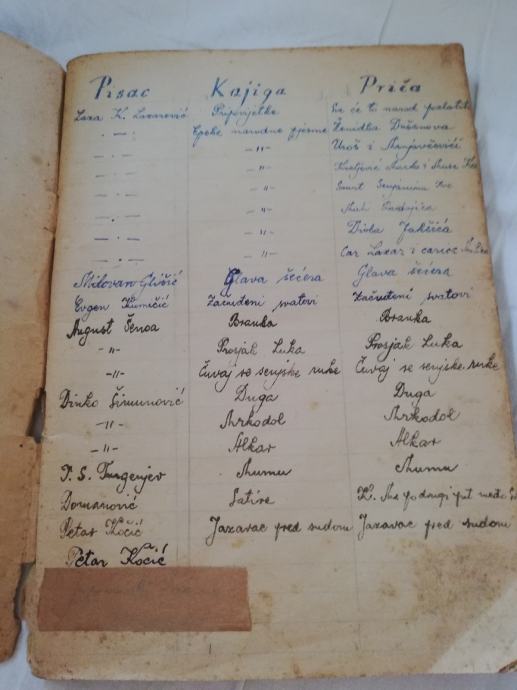 Pisac Knjiga Priča
Laza K. Lazarević Pripovjetke Sve će to narod pozlatiti
— · — Epske narodne pjesme Ženidba Dušanova
— · — —"— Uroš i Mrnjavčevići
— · — —"— Kraljević Marko i Musa Kes
— · — —"— Smrt Senjanina Ive
— · — —"—
— · — —"— Dioba Jakšića
— · — —"— Car Lazar i carica
Milovan Glišić Glava šećera Glava šećera
Evgen Kumičić Začuđeni svatovi Začuđeni svatovi
August Šenoa Branka Branka
—"— Prosjak Luka Prosjak Luka
—"— Čuvaj se senjske ruke Čuvaj se senjske ruke
Dinko Šimunović Duga Duga
—"— Mrkodol Mrkodol
—"— Alkar Alkar
I. S. Turgenjev Mumu Mumu
Domanović Satire K. M. po drugi put među
Petar Kočić Jazavac pred sudom Jazavac pred sudom
Petar Kočić